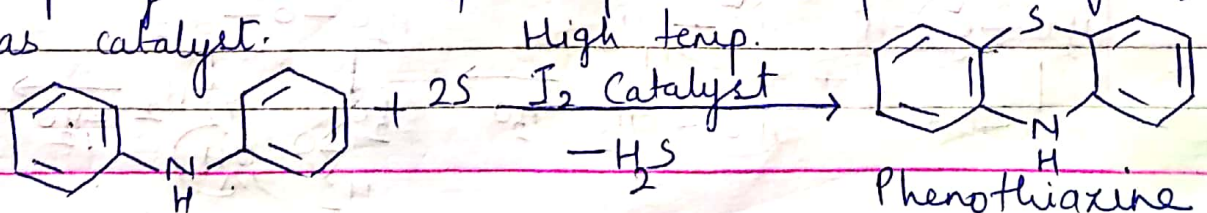 as catalyst.
High temp.
+ 2S I₂ Catalyst
-H₂S
N
H
S
N
H
Phenothiazine